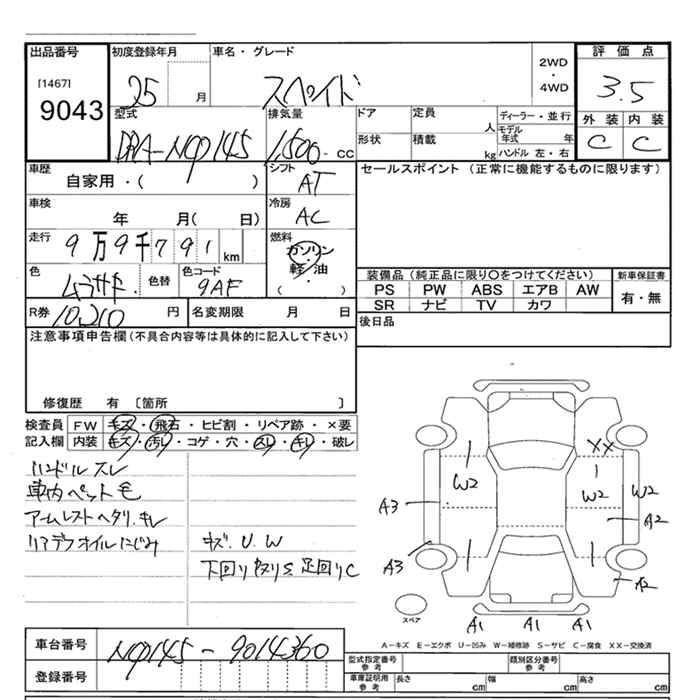 出品番号 初度登録年月 車名・グレード 評価点
[1467] 2WD
9043 25 月 スペイド ・ 3.5
4WD
型式 排気量 ドア 定員 ディーラー・並行 外装 内装
DBA-NCP145 1,500-CC 人 モデル年式 年 C C
形状 積載 kg ハンドル 左・右
車歴 シフト セールスポイント (正常に機能するものに限ります)
自家用・( ) AT
車検 冷房
年 月( 日) AC
走行 燃料
9万9千791km ガソリン
軽・油
色 色替 色コード ( ) 装備品 (純正品に限り〇をつけてください) 新車保証書
ムラサキ 9AF PS PW ABS エアB AW 有・無
SR ナビ TV カワ
R券 10,210 円 名変期限 月 日 後日品
注意事項申告欄(不具合内容等は具体的に記入して下さい)
修復歴 有 [箇所 ]
検査員 FW キズ・飛石・ヒビ割・リペア跡・×要
記入欄 内装 キズ・汚し・コゲ・穴・スレ・キレ・破レ
ハンドル スレ
車内ペット毛
アームレストヘタリ.キレ
リアデフオイルにじみ キズ.U.W
下回りサビS 足回りC
XX
W2 W2 W2
A3 A2
A3 A2
スペア A1 A1 A1
A-キズ E-エクボ U-凹み W-補修跡 S-サビ C-腐食 XX-交換済
車台番号 NCP145-9014360
型式指定番号 参考 類別区分番号 参考
登録番号 車庫証明用 参考 長さ cm 幅 cm 高さ cm